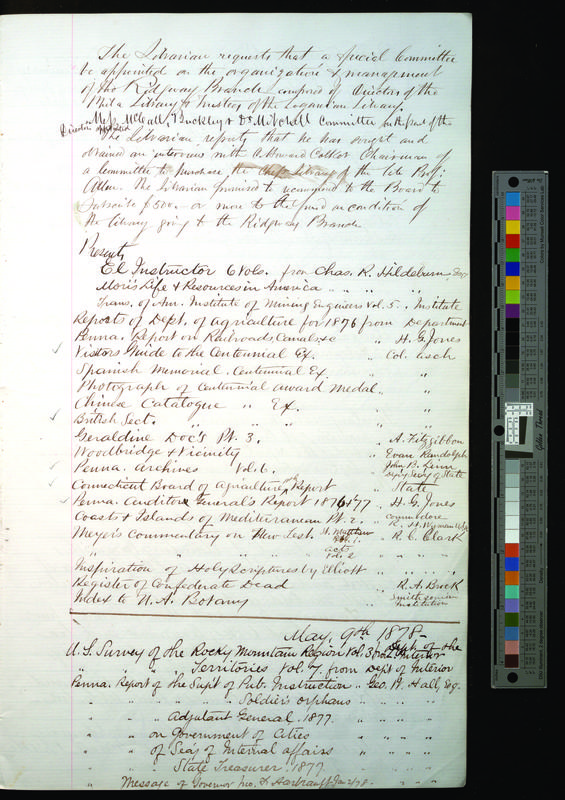 The Librarian requests that a Special Committee
be appointed on the organization & management
of the Ridgway Branch composed of Directors of the
Phila Library & Trustees of the Loganian Library.
Mess McCall, Buckley & Dr Mitchell Committee on the part of the
Directors appointed
The Librarian reports that he has sought and
obtained an interview with Chairman of
a Committee to purchase the Library of the late Prof:
Allen. The Librarian promised to recommend to the Board to
Subscribe $500. or more to the fund on condition of
the library going to the Ridgway Branch
Presents
El Instructor 6 Vols. from Chas. R. Hildeburn Esqr
Mori's Life & Resources in America " " " "
Trans. of Am. Institute of Mining Engineers Vol. 5. " Institute
Reports of Dept. of Agriculture for 1876 from Department
Penna. Report on Railroads, Canals &c " H. G. Jones
Visitors Guide to the Centennial Ex. " Col.
Spanish Memorial. Centennial Ex. " "
Photograph of Centennial Award Medal " "
Chinese Catalogue " Ex. " "
British Sect. " " " "
Geraldine Doc's Pt. 3. " A. Fitzgibbon
Woodbridge & Vicinity " Evan Randolph
Penna. Archives Vol. 6. " John B. Linn
Depy Secy of State
Connecticut Board of Agriculture, Report " State
Penna. Auditor General's Report 1876 & 77 " H. G. Jones
Coasts & Islands of Mediterranean Pt. 2. " Commodore
R. H. Wyman U.S.N.
Meyer's Commentary on New Test. St. Matthew " R. C. Clark
Vol. 1.
" " " " " Acts " " "
Vol. 2
Inspiration of Holy Scriptures by Elliott " " "
Register of Confederate Dead " R. A. Brock
Index to N. A. Botany " Smithsonian
Institution
May. 9th 1878-
U. S. Survey of the Rocky Mountain Region Vol. 3 from Dept. of the
Interior
" " " Territories Vol. 7. from Dept of Interior
Penna. Report of the Sup't of Pub. Instruction " Geo. W. Hall, Esq.
" " " " Soldier's Orphans " " " "
" " " Adjutant General. 1877. " " "
" " on Government of Cities " " "
" " of Sec'y of Internal Affairs " " "
" " " State Treasurer. 1877 " " "
" Message of Governor Jno. F. Hartranft Jan 2/78 - " " "